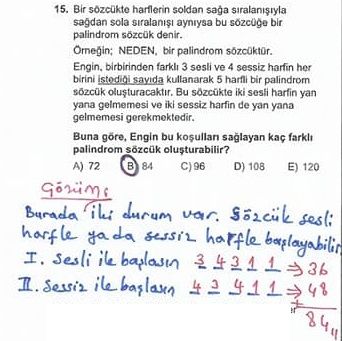 15. Bir sözcükte harflerin soldan sağa sıralanışıyla
sağdan sola sıralanışı aynıysa bu sözcüğe bir
palindrom sözcük denir.
Örneğin; NEDEN, bir palindrom sözcüktür.
Engin, birbirinden farklı 3 sesli ve 4 sessiz harfin her
birini istediği sayıda kullanarak 5 harfli bir palindrom
sözcük oluşturacaktır. Bu sözcükte iki sesli harfin yan
yana gelmemesi ve iki sessiz harfin de yan yana
gelmemesi gerekmektedir.
Buna göre, Engin bu koşulları sağlayan kaç farklı
palindrom sözcük oluşturabilir?
A) 72 B) 84 C) 96 D) 108 E) 120
Çözüm:
Burada iki durum var. Sözcük sesli
harfle yada sessiz harfle başlayabilir
I. Sesli ile başlasın 3 4 3 1 1 → 36
II. Sessiz ile başlasın 4 3 4 1 1 → 48
+
84